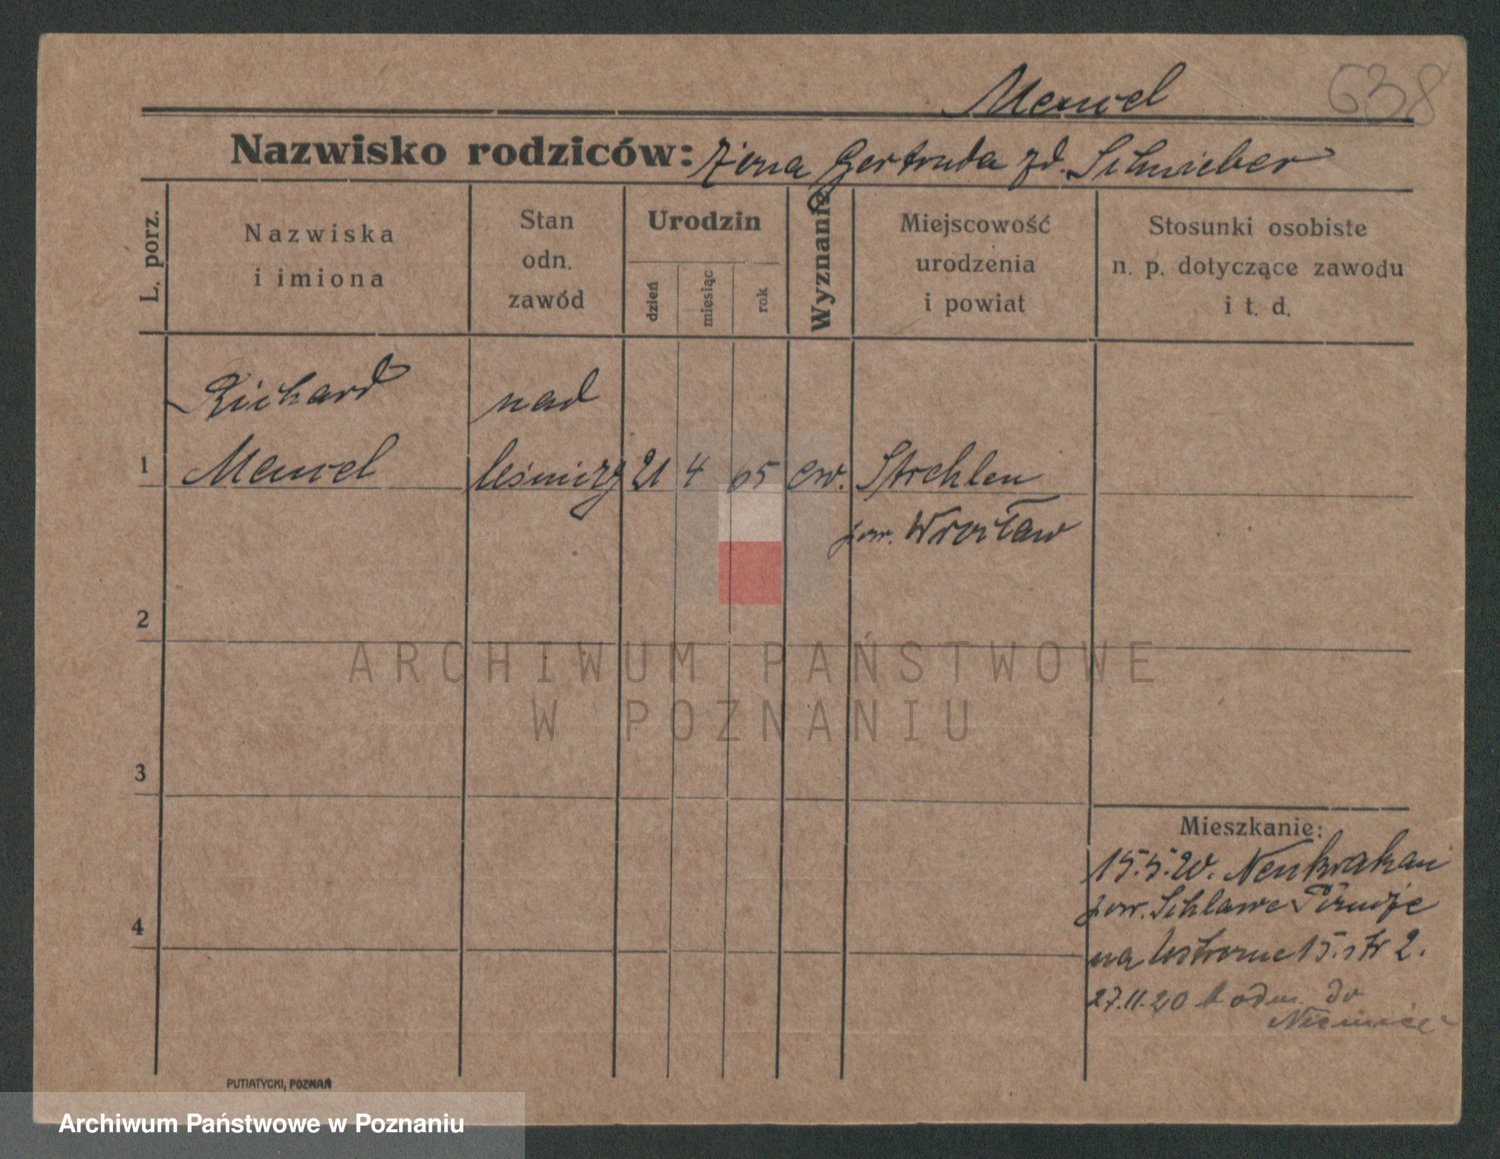 Menzel
638
Nazwisko rodziców: żona Gertruda zd. Schnieber
L. porz.
Nazwiska
i imiona
Stan
odn.
zawód
Urodzin
dzień
miesiąc
rok
Wyznanie
Miejscowość
urodzenia
i powiat
Stosunki osobiste
n. p. dotyczące zawodu
i t. d.
Richard nad
1 Menzel leśniczy 21 4 65 ew. Strehlen
pow. Wrocław
2
ARCHIWUM PAŃSTWOWE
W POZNANIU
3
Mieszkanie:
15.5.20. Neukrakau
pow. Schlawe
4
na 15. 2.
27.11.20 do
Niemiec
PUTIATYCKI, POZNAŃ
Archiwum Państwowe w Poznaniu